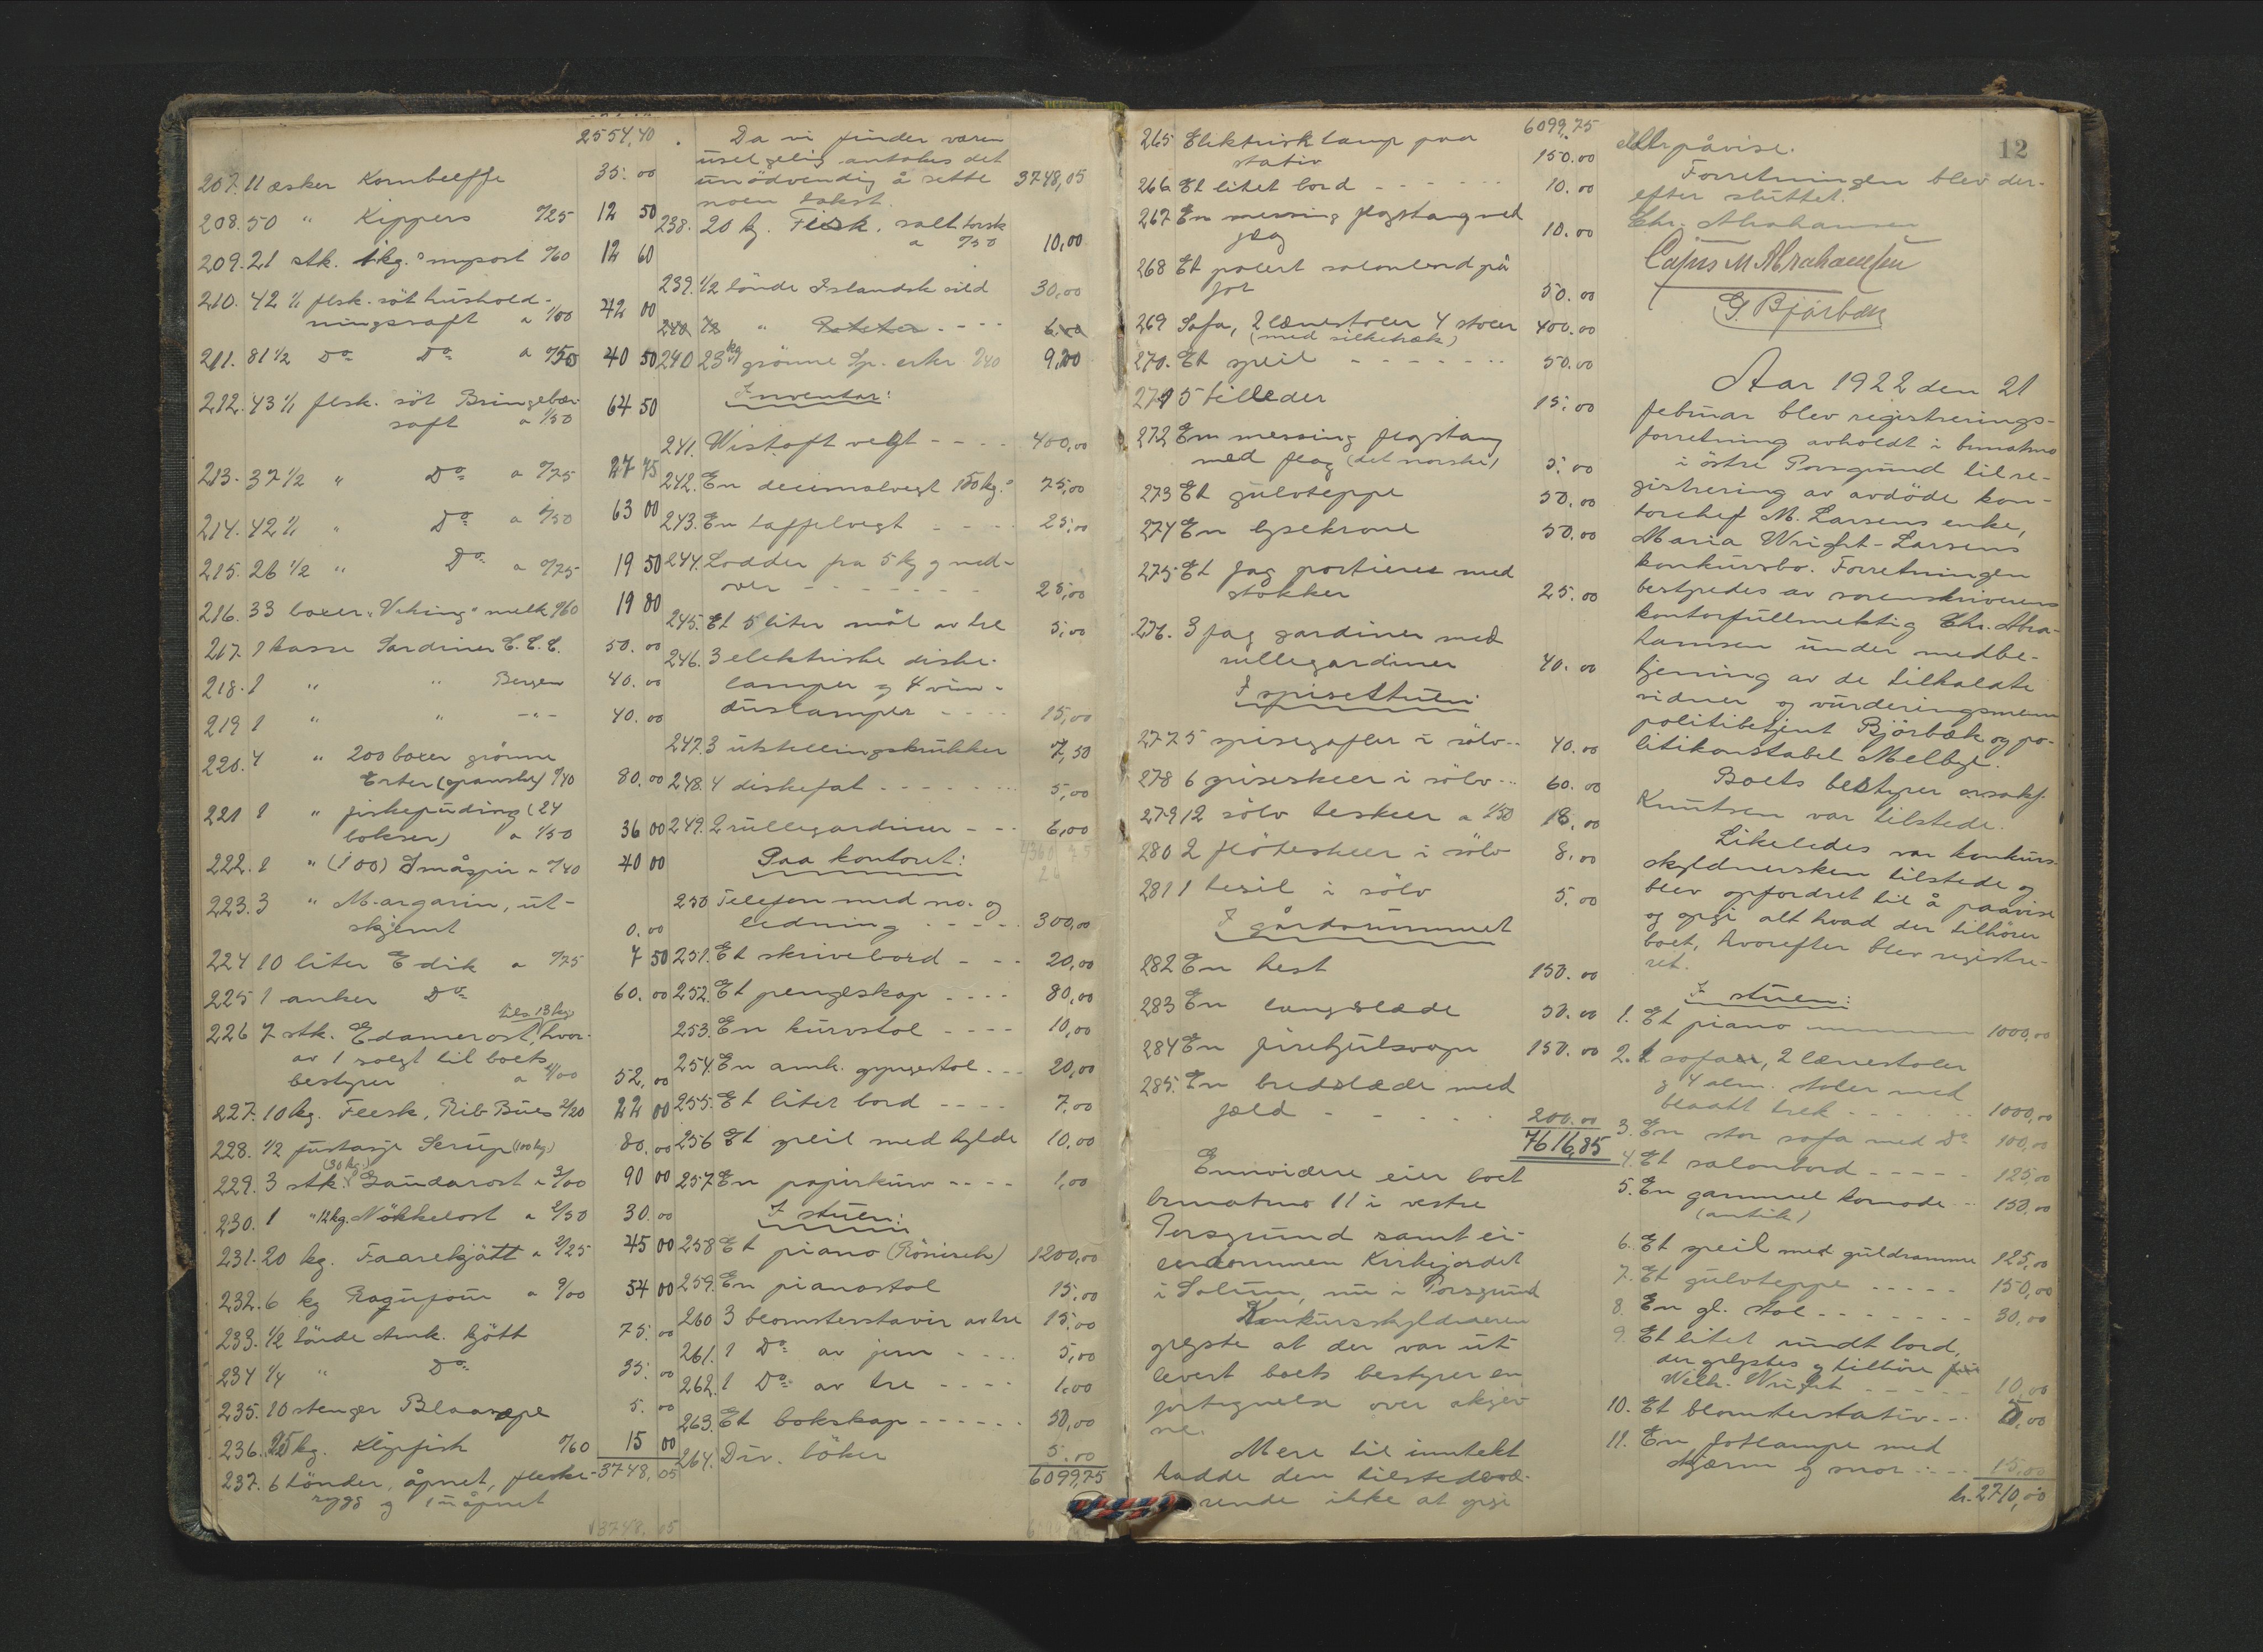 2554,40
207. 11 æsker Kornbeeffe 35.00
208. 50 " Kippers 0/25 12 50
209. 21 stk. 1kg. mysost 0/60 12 60
210. 42 1/1 flsk. söt hushold-
ningssaft a 1/00 42 00
211. 81 1/2 Do Do a 0/50 40 50
212. 43 1/1 flsk. söt Bringebær
saft a 1/50 64 50
213. 37 1/2 " Do a 0/75 27 75
214. 42 1/1 " Do a 1/50 63 00
215. 26 1/2 " Do a 0/75 19 50
216. 33 boxer "Viking" melk 0/60 19 80
217. 1 kasse Sardiner C.C.C. 50.00
218. 1 " " Bergen 40.00
219 1 " " -"- 40.00
220. 4 " 200 boxer grönne
Erter (spanske) 0/40 80.00
221 1 " fiskepuding (24
bokser) a 1/50 36 00
222. 1 " (100) Småspir a 0/40 40 00
223. 3 " Margarin, ut-
skjemt 0.00
224 10 liter Edik a 0/75 7 50
225 1 anker Do 60.00
tils. 13 kg
226 7 stk. Edamerost, hvor-
av 1 solgt til boets
bestyrer a 4/00 52,00
227. 10 kg. Flesk, Rib Bües 2/20 22 00
228. 1/2 fustasje Serup (100 kg) 80.00
(30 kg.)
229. 3 stk. Gaudarost a 3/00 90 00
230. 1 " 12 kg. Nökkelost a 2/50 30.00
231. 20 kg. Faarekjött a 2/25 45 00
232. 6 kg Ragufour a 9/00 54 00
233. 1/2 tönde Amk. kjött 75.00
234 1/4 " Do 35.00
235. 10 stenger Blaasæpe 5.00
236. 25 kg. Klipfisk 0/60 15 00
3748,05
237. 6 tönder, åpnet, fleske-
rygg og 1 uåpnet
3748.05
Da vi finder varen
uselgelig antokes det
unödvendig å sette 3748,05
noen takst.
238. 20 kg. Fisk. salt torsk
a 0/50 10,00
239. 1/2 tönde Islandsk sild 30,00
240 1/2 " Poteter - - - - 6.00
240 23 kg grönne Sp. erter 0/40 9,20
Inventar:
241. Wistoft vegt - - - - 400,00
242. En decimalvegt 150 kg. 75,00
243. En taffelvegt - - - - 25,00
244. Lodder fra 5 kg og ned-
over - - - - - - - 25,00
245. Et 5 liter mål av tre 5,00
246. 3 elektriske diske-
lamper og 4 vin-
duslamper - - - - 15,00
247. 3 utstellingskrukker 7,50
248. 4 diskefat - - - - - - - 5,00
249. 2 rullegardiner - - - 6,00
Paa kontoret:
250 Telefon med no. og
ledning - - - - - 300,00
251. Et skrivebord - - - 20,00
252. Et pengeskap - - - - 80,00
253. En kurvstol - - - - 10,00
254. En amk. gyngestol - - - 20,00
255. Et litet bord - - - - 7,00
256 Et speil med hylde 10,00
257. En papirkurv - - - - 1,00
I stuen:
258 Et piano (Rönisch) 1200,00
259. En pianostol 15,00
260 3 blomsterstavir av tre 15,00
261. 1 Do av jern - - - - 5,00
262. 1 Do av tre - - - - 1.00
263. Et bokskap - - - - - - 50,00
264. Div. böker 5.00
6099,75
6099,75
265 Elektrisk lamp paa
stativ 150.00
266. Et litet bord - - - - - - 10.00
267 En messing flagstang med
flag 10.00
268 Et polert salonbord på
for 50.00
269 Sofa, 2 lænestoler 4 stoler 400.00
(med silketræk)
270. Et speil - - - - - - - 50.00
271 5 billeder 15.00
272 En messing flagstang
med flag (det norske) 5.00
273 Et gulvteppe 50.00
274 En lysekrone 50.00
275 Et fag portierer med
stokker 25.00
276. 3 fag gardiner med
rullegardiner 40.00
I spisestuen:
277 5 spisegafler i sölv - - 40.00
278 6 spiseskeer i sölv - - - 60.00
279 12 sölv teskeer a 1/50 18,00
280 2 flöteskeer i sölv 8.00
281 1 tesil i sölv 5.00
I gårdsrummet
282 En hest 150.00
283 En langslæde 50.00
284 En firehjulsvogn 150.00
285. En bredslæde med
fjeld - - - - - 200.00
7616,85
Ennvidere eier boet
brmatrno 11 i vestre
Porsgrund samt ei-
endommen Kirkejordet
i Solum, nu i Porsgrund
Konkursskyldneren
oplyste at der var ut
levert boets bestyrer en
fortegnelse over akjev
ne.
Mere til inntekt
hadde den tilstedevæ-
rende ikke at opgi
12
eller påvise.
Forretningen blev der-
efter sluttet.
Chr. Abrahamsen
Cajus M Abrahamsen
G. Bjørbæk
Aar 1922 den 21
februar blev registrerings-
forretning avholdt i brmatrno
i östre Porsgrund til re-
gistrering av avdöde kon-
torchef M. Larsens enke,
Maria Wright-Larsens
konkursbo. Forretningen
bestyredes av sorenskriverens
kontorfullmektig Chr. Abra-
hamsen under medbe-
tjening av de tilkaldte
vidner og vurderingsmenn
politibetjent Bjørbæk og po-
litikonstabel Melbye.
Boets bestyrer o.r.sakf.
Knutsen var tilstede.
Likeledes var konkurs-
skyldnersken tilstede og
blev opfordret til å paavise
og opgi alt hvad der tilhörer
boet, hvorefter blev registre-
ret.
I stuen:
1. Et piano 1000,00
2. 1 sofa, 2 lænestoler
og 4 alm. stoler med
blaatt trek - - - - - 1000,00
3. En stor sofa med Do 100,00
4. Et salonbord - - - - - 125,00
5. En gammel komode - - 150,00
(antik)
6. Et speil med guldramme 125,00
7. Et gulvteppe - - - - - 150,00
8. En gl. stol - - - - - - - 30,00
9. Et litet rundt bord,
der oplystes å tilhöre frk
Welh. Wright - - - - - 10,00
10. Et blomsterstativ - - - 5,00
11. En fotlampe med
skjærm og snor - - - - 15,00
kr. 2710,00